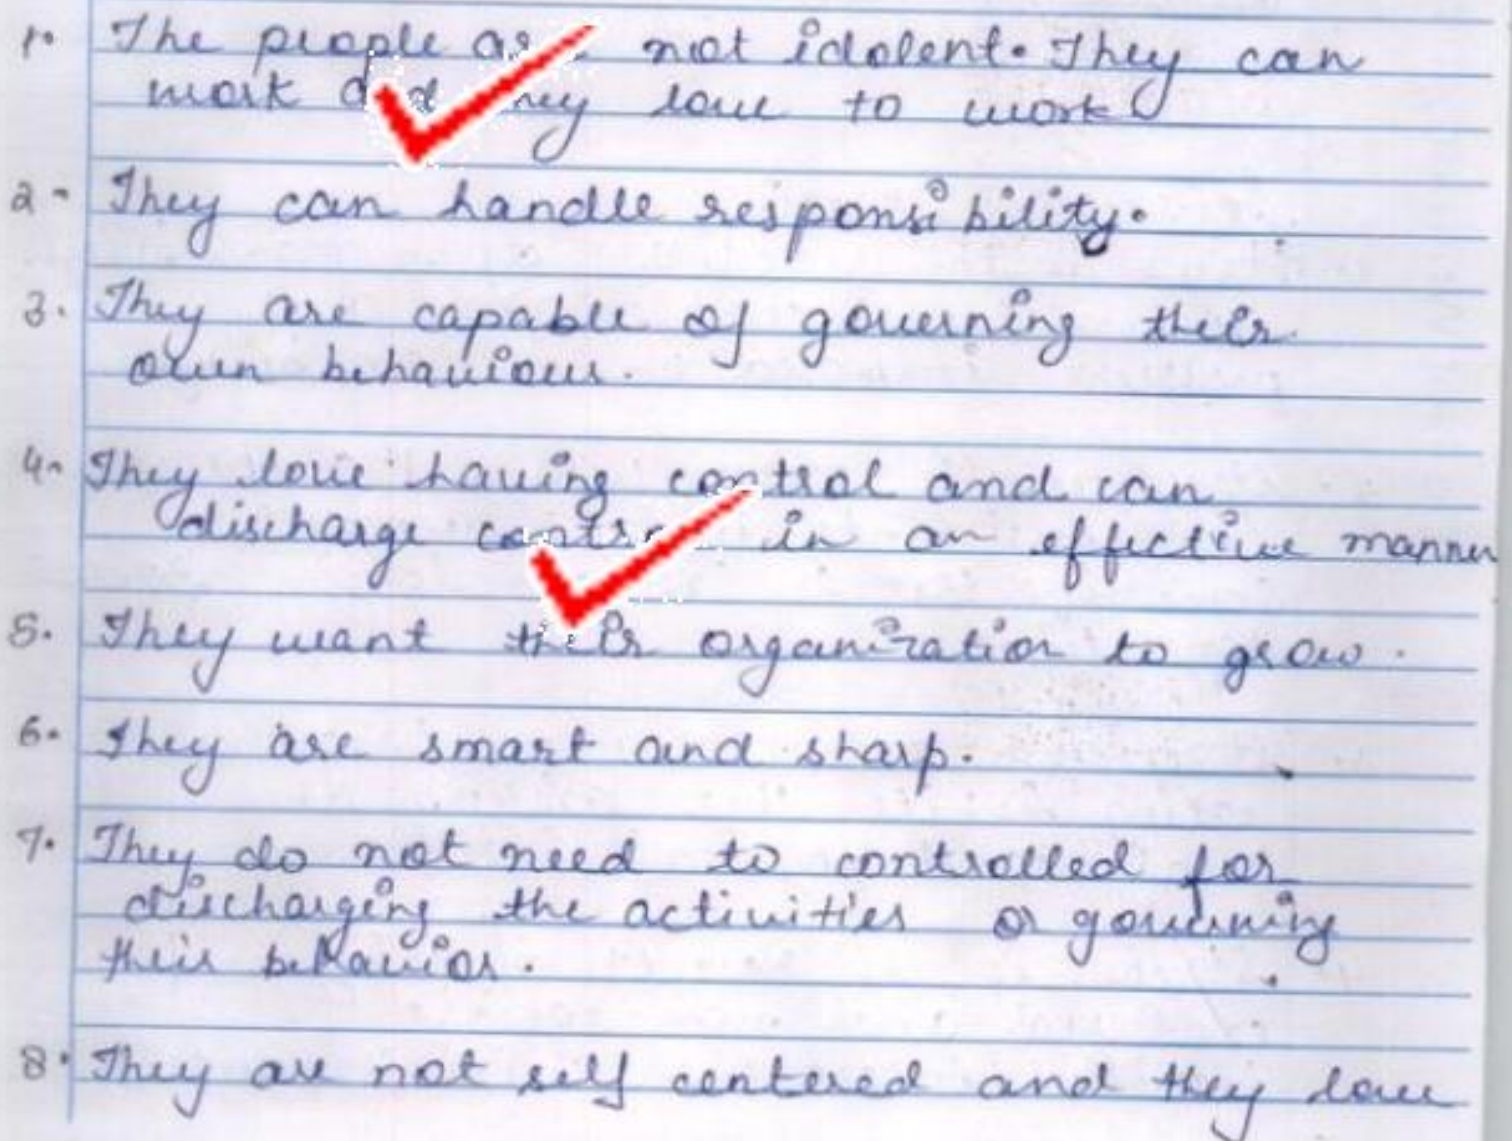 1. The people are not idolent. They can
work and they love to work
2- They can handle responsibility.
3. They are capable of governing their
own behaviour.
4- They love having control and can
discharge control in an effective manner
5. They want their organization to grow.
6. They are smart and sharp.
7. They do not need to controlled for
discharging the activities or governing
their behavior.
8. They are not self centered and they love